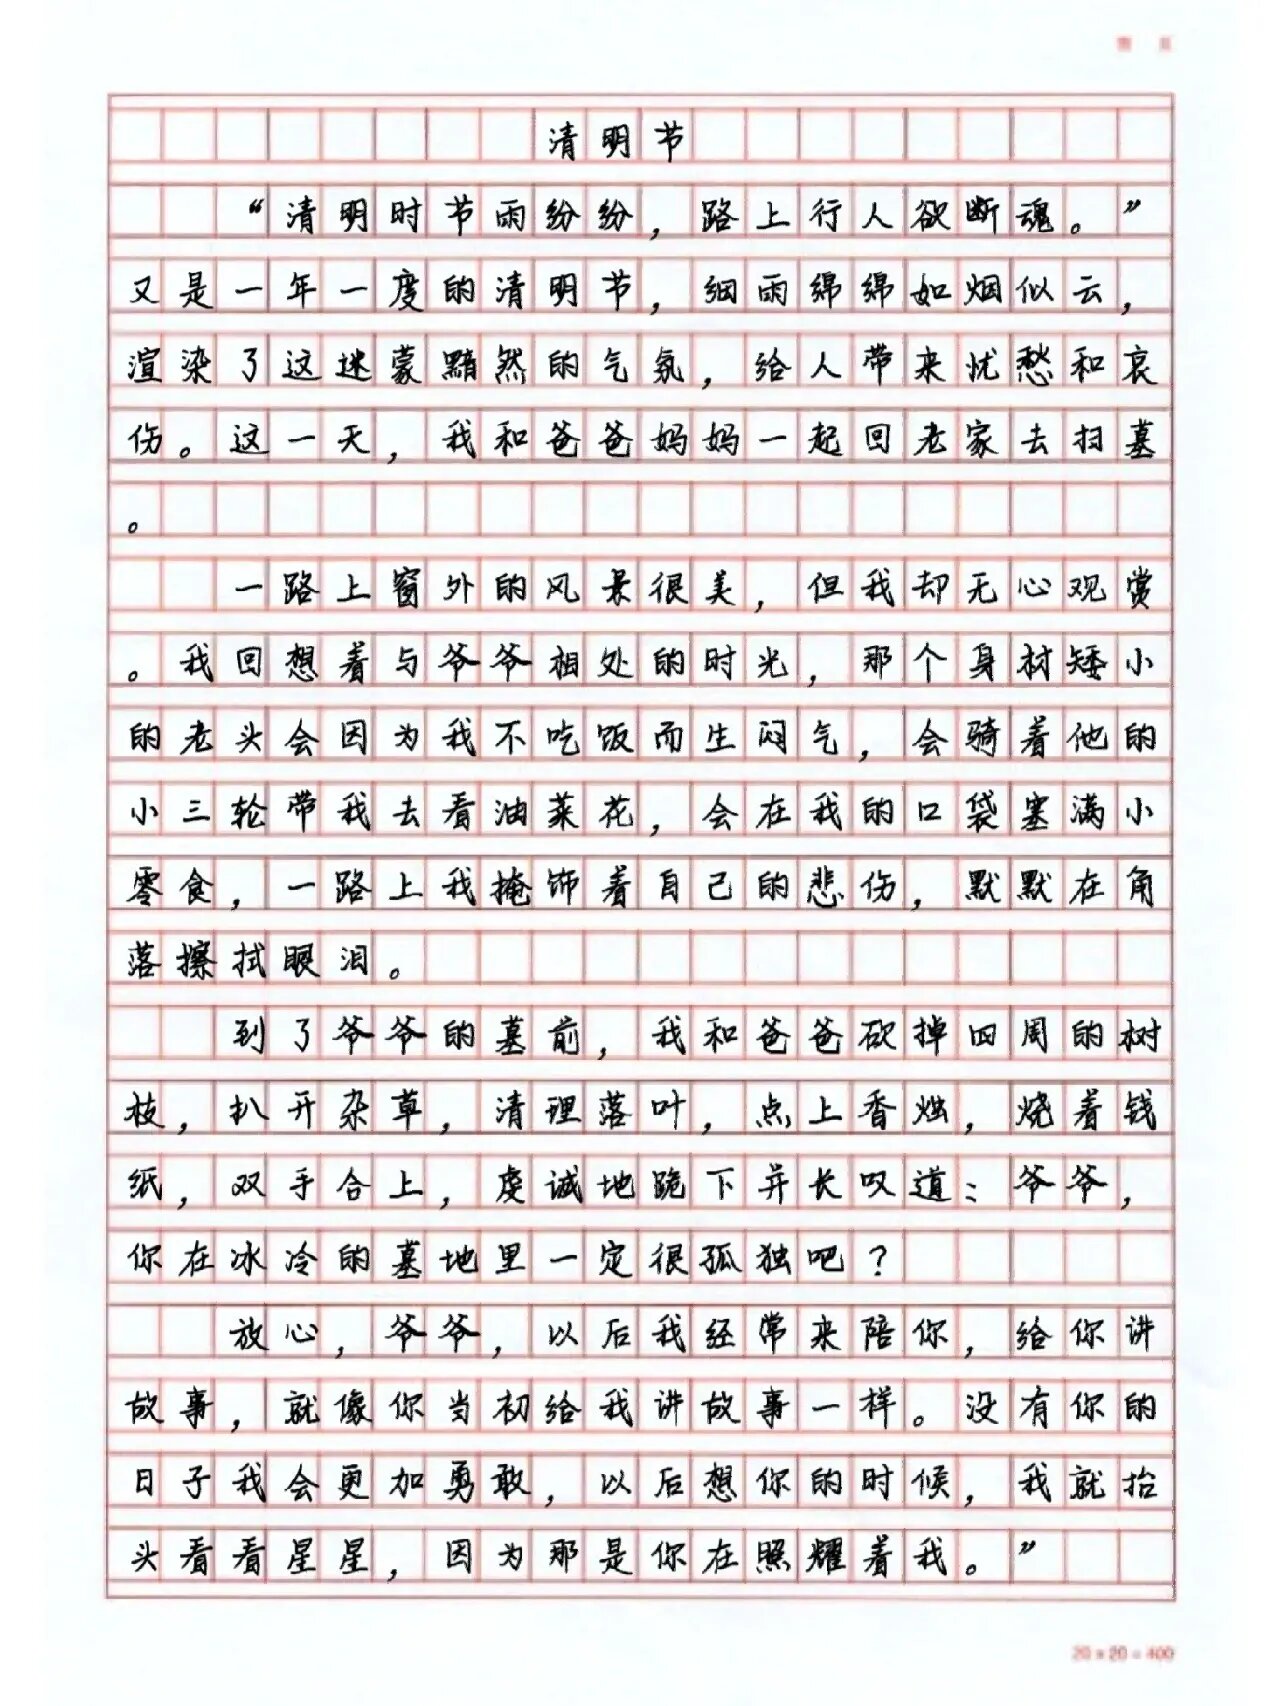 清明节
“清明时节雨纷纷，路上行人欲断魂。”
又是一年一度的清明节，细雨绵绵如烟似云，
渲染了这迷蒙黯然的气氛，给人带来忧愁和哀
伤。这一天，我和爸爸妈妈一起回老家去扫墓
。
一路上窗外的风景很美，但我却无心观赏
。我回想着与爷爷相处的时光，那个身材矮小
的老头会因为我不吃饭而生闷气，会骑着他的
小三轮带我去看油菜花，会在我的口袋塞满小
零食，一路上我掩饰着自己的悲伤，默默在角
落擦拭眼泪。
到了爷爷的墓前，我和爸爸砍掉四周的树
枝，扒开杂草，清理落叶，点上香烛，烧着钱
纸，双手合上，虔诚地跪下并长叹道：爷爷，
你在冰冷的墓地里一定很孤独吧？
放心，爷爷，以后我经常来陪你，给你讲
故事，就像你当初给我讲故事一样。没有你的
日子我会更加勇敢，以后想你的时候，我就抬
头看看星星，因为那是你在照耀着我。”
20×20=400